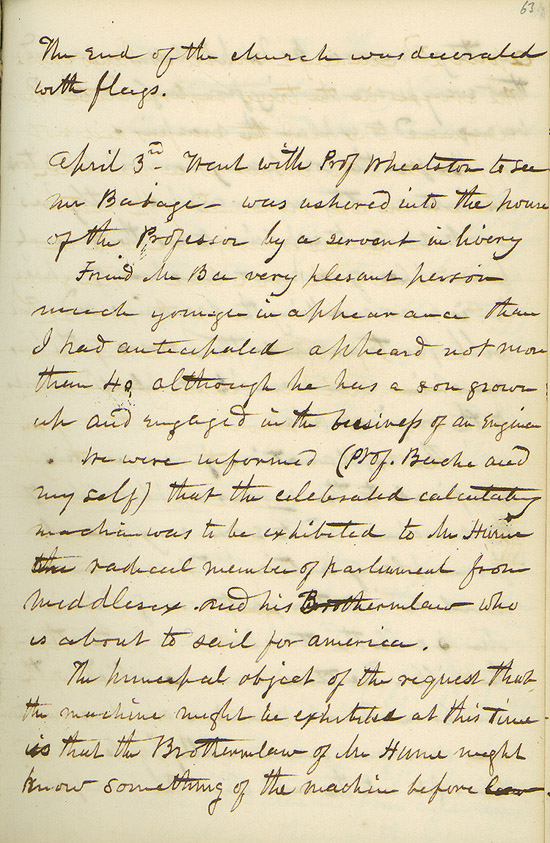 63
The end of the church was decorated
with flags.
April 3rd - Went with Prof Wheatston to see
mr Babage - was ushered into the house
of the Professor by a servent in livery
Friend Mr Ba very plesant person
much younger in appearance than
I had anticepated appeard not more
than 40 although he has a son grown
up and engaged in the business of an Engineer
We were informed (Prof. Bache and
my self) that the celebrated calculating
machine was to be exhibited to Mr Hume
the radical member of parliament from
Middlesex and his Brothernlaw who
is about to sail for america.
The principal object of the request that
the machine might be exhibited at this time
is that the Brothernlaw of Mr Hume might
know something of the machine before